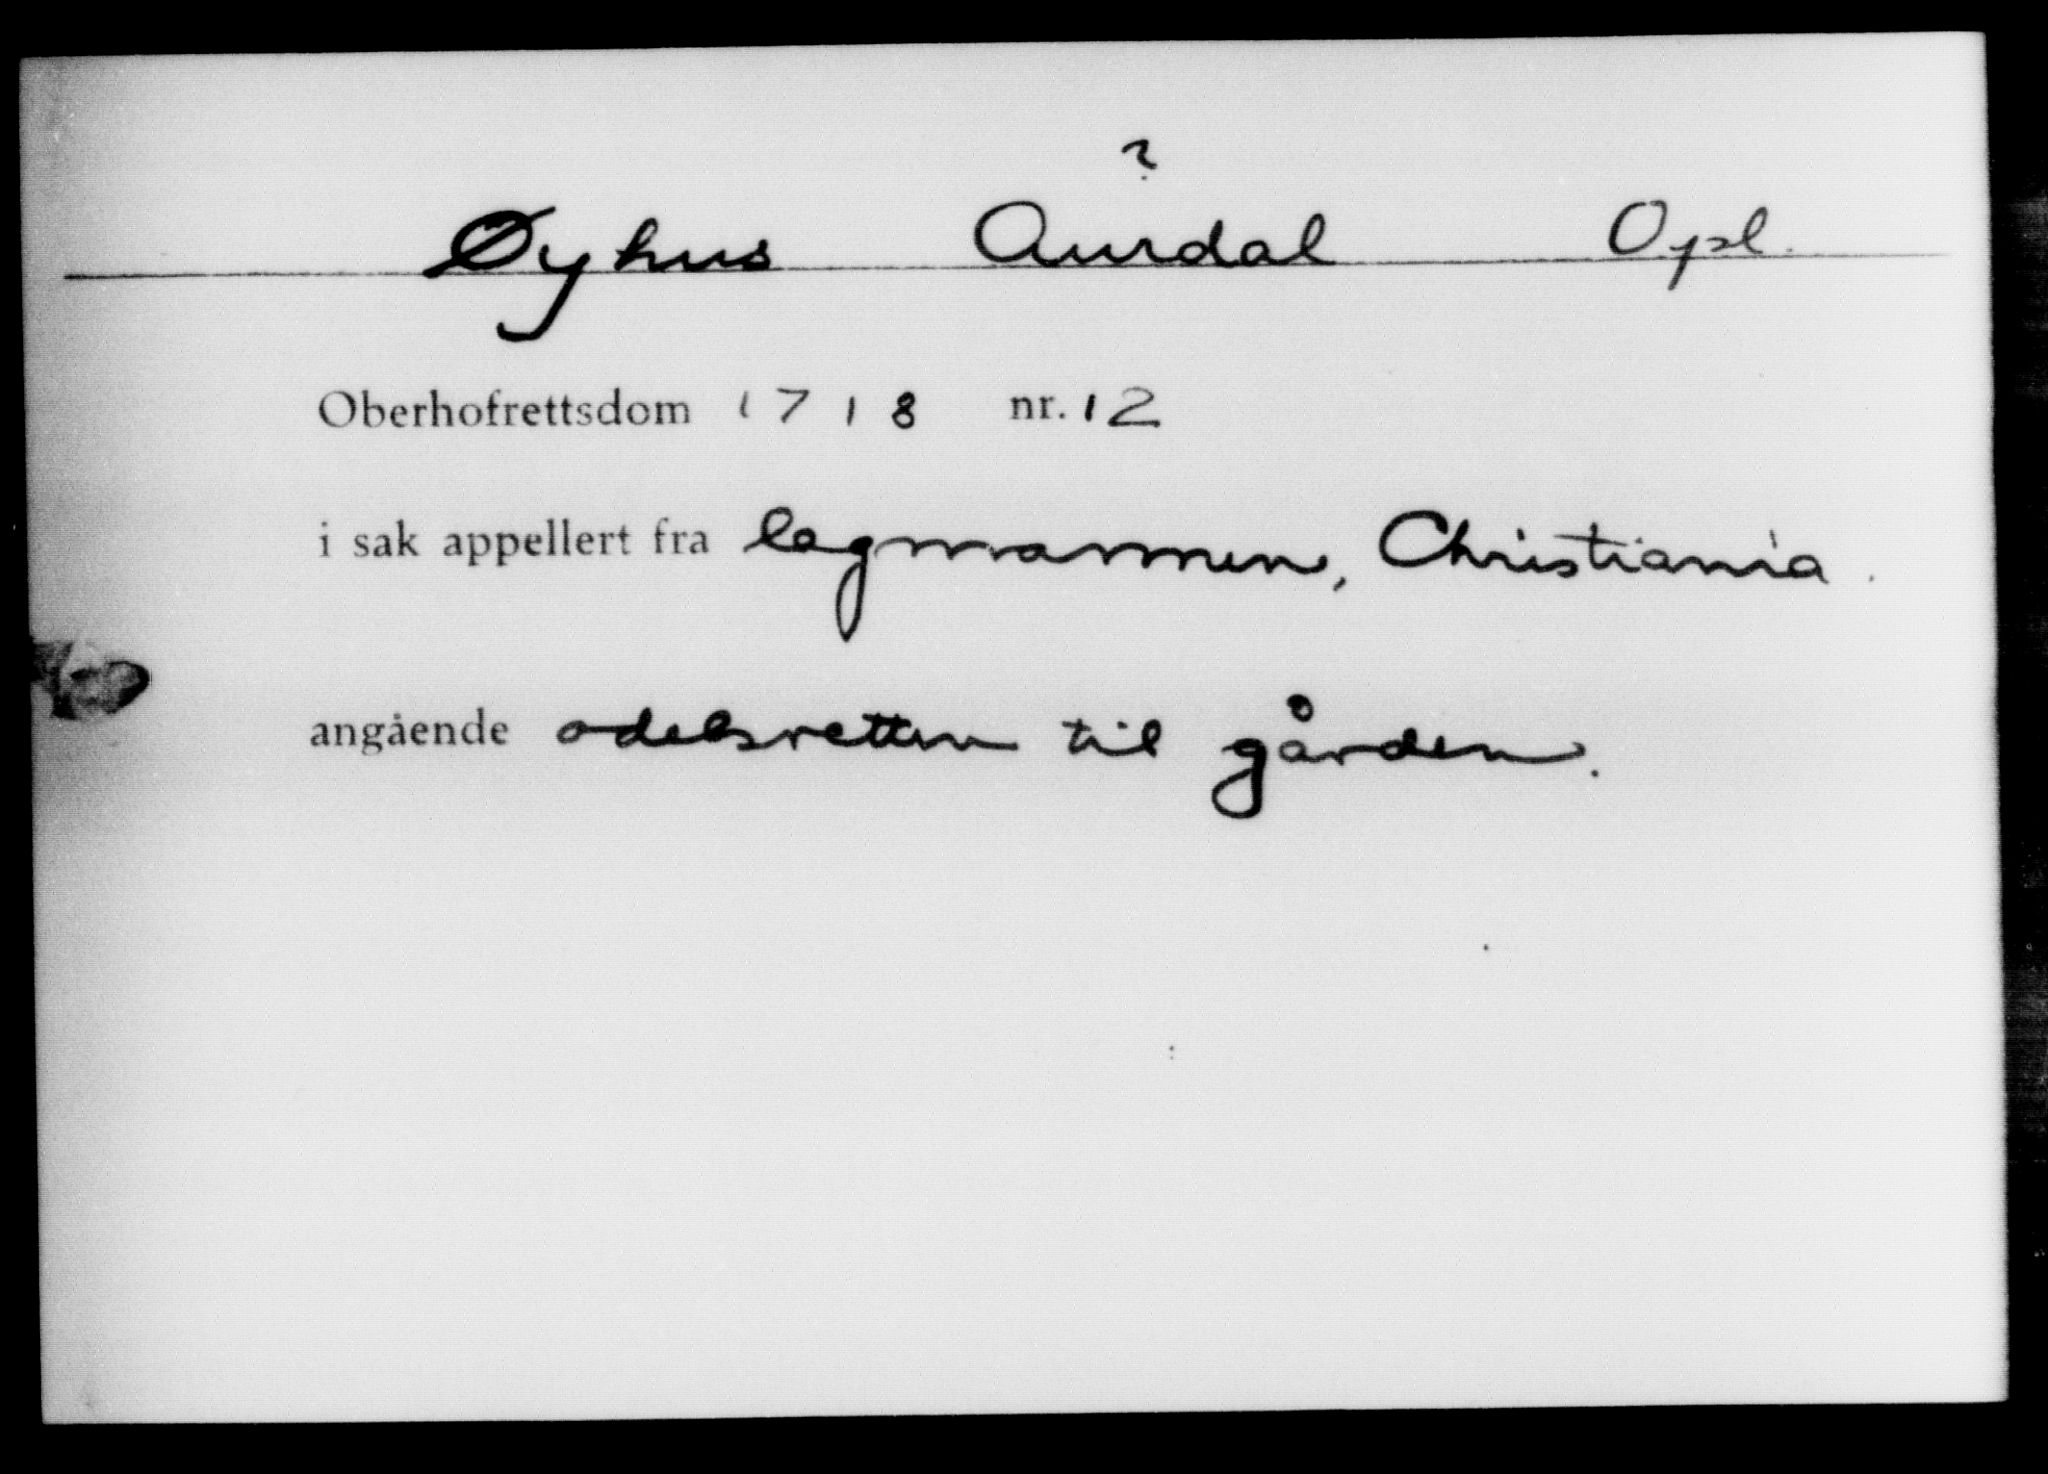 ?
Øyhus Aurdal Opl.
Oberhofrettsdom 1718 nr. 12
i sak appellert fra lagmannen, Christiania.
angående odelsretten til gården.